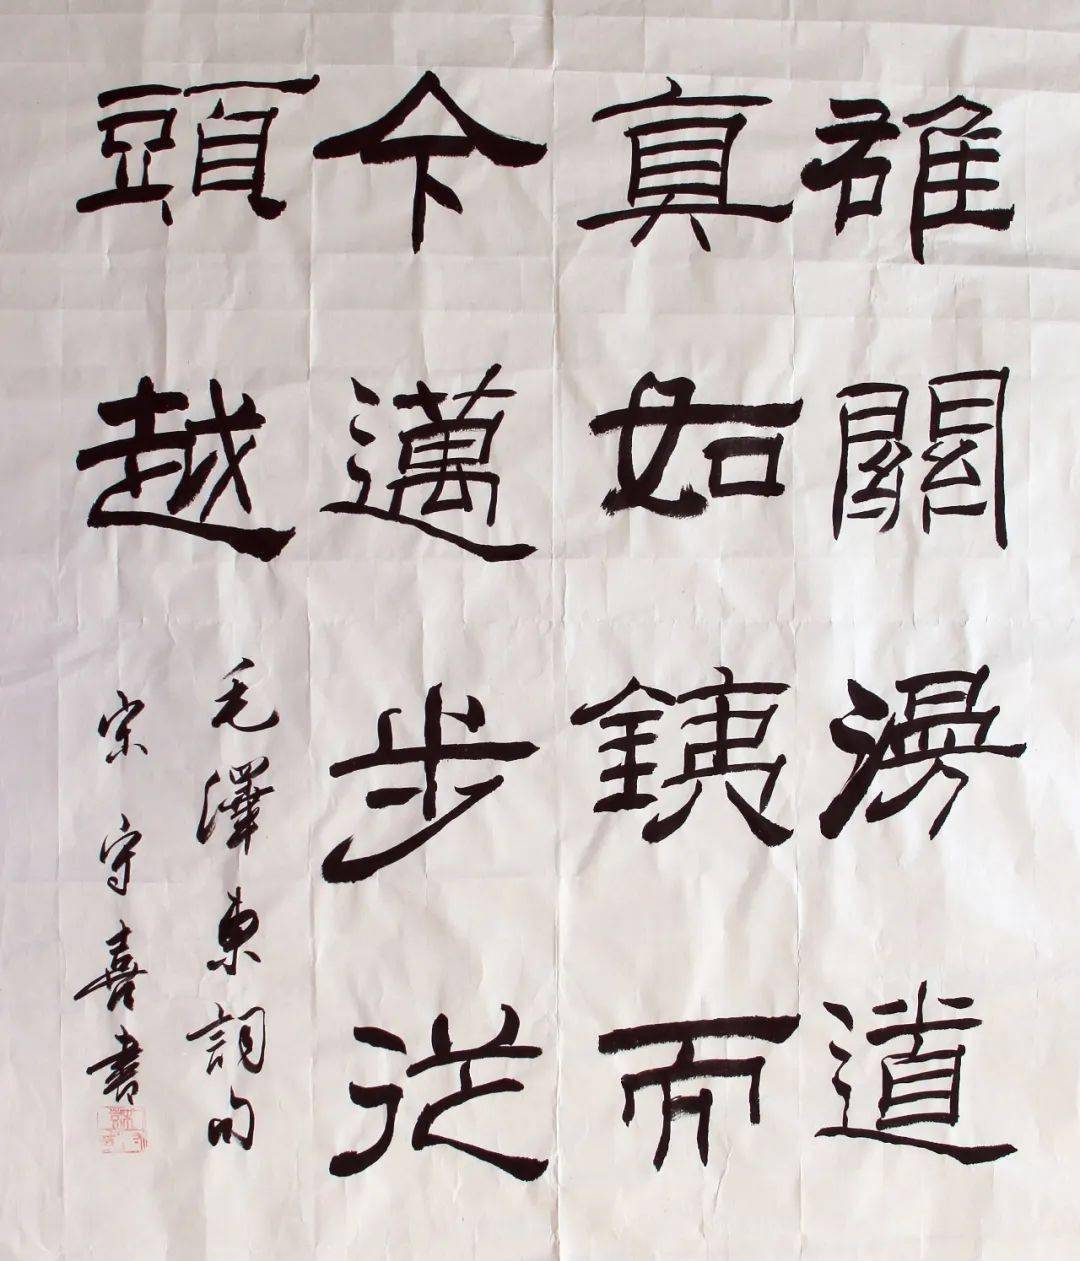 雄關漫道
真如鐵而
今邁步從
頭越
毛澤東詞句
宋守喜書